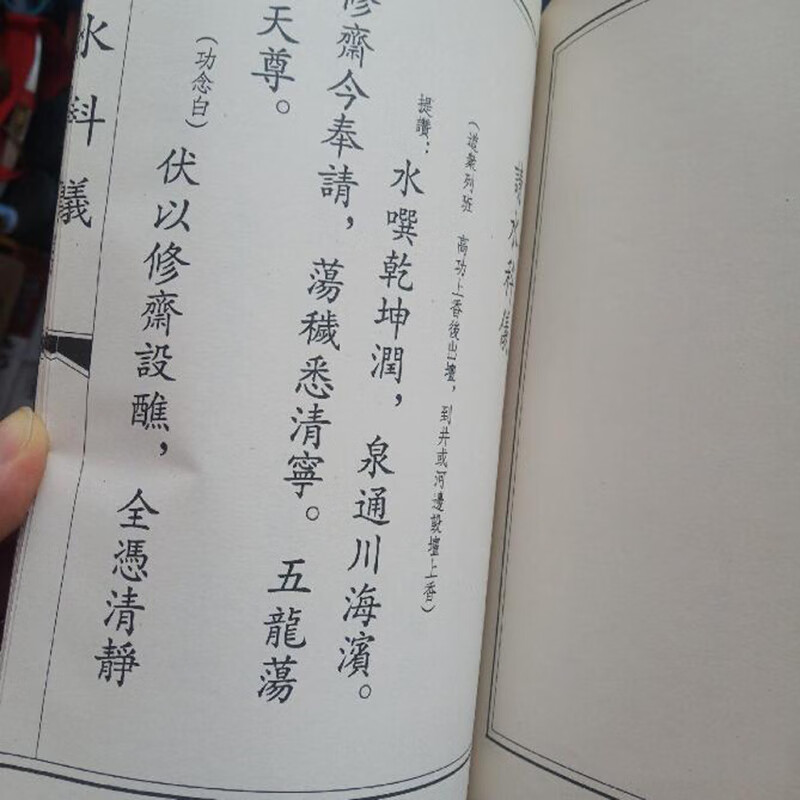 請水科儀
（道衆列班　高功上香後出壇，到井或河邊設壇上香）
提讚：水噀乾坤潤，泉通川海濱。
修齋今奉請，蕩穢悉清寧。五龍蕩
天尊。
（功念白）伏以修齋設醮，全憑清靜
水科儀